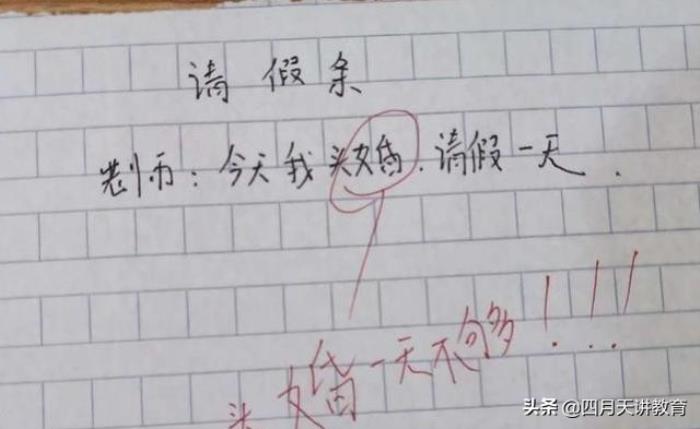 请假条
老师：今天我头婚.请假一天.
头婚一天不够！！！
头条 @四月天讲教育